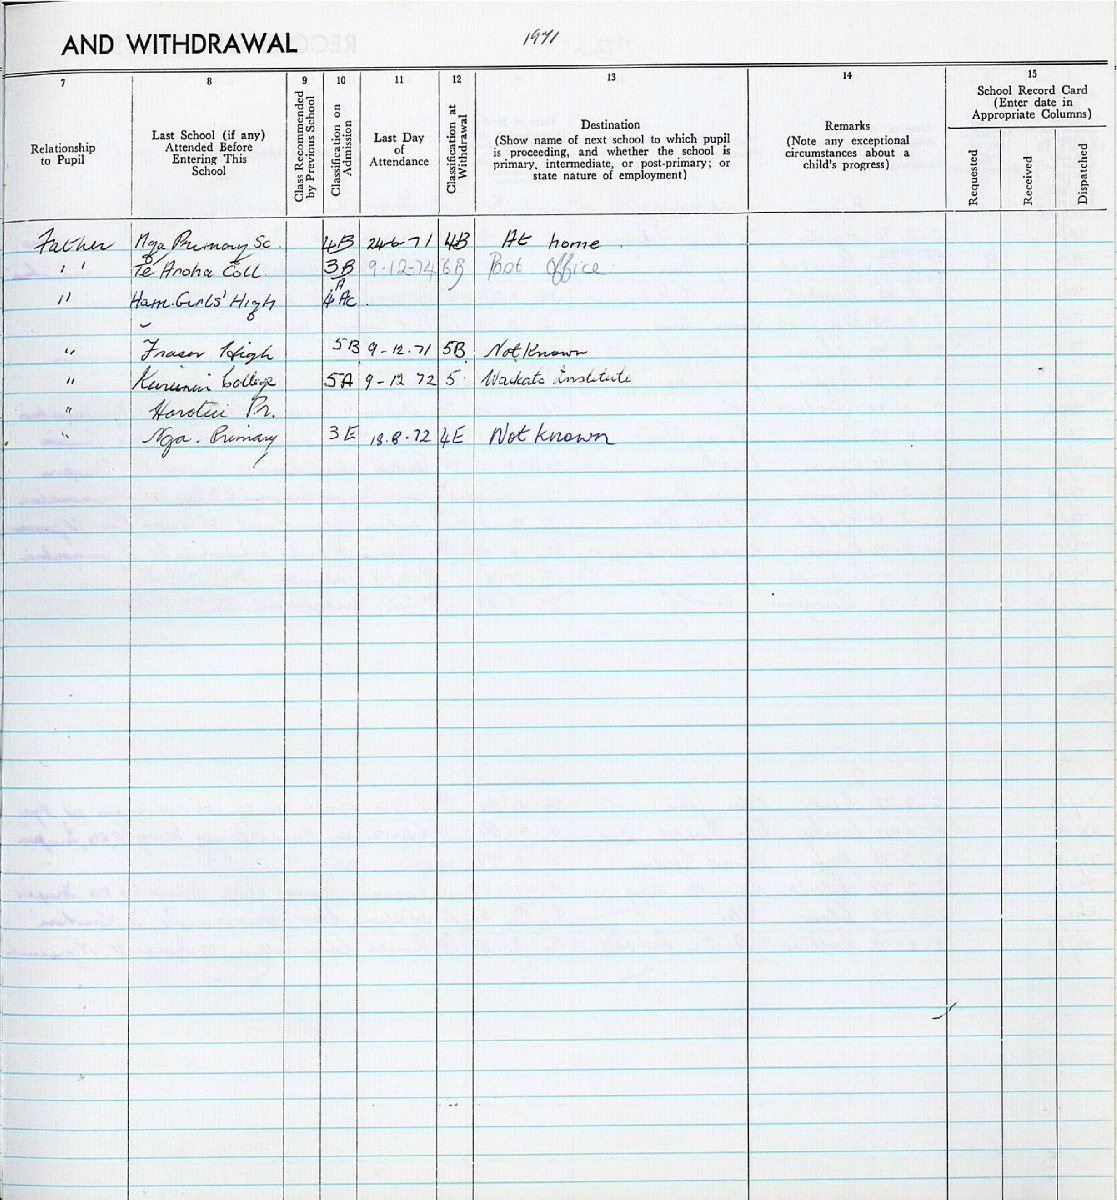 AND WITHDRAWAL 1971
7 8 9 10 11 12 13 14 15
Relationship to Pupil
Last School (if any) Attended Before Entering This School
Class Recommended by Previous School
Classification on Admission
Last Day of Attendance
Classification at Withdrawal
Destination
(Show name of next school to which pupil is proceeding, and whether the school is primary, intermediate, or post-primary; or state nature of employment)
Remarks
(Note any exceptional circumstances about a child's progress)
School Record Card
(Enter date in Appropriate Columns)
Requested
Received
Dispatched
Father Nga Primary Sc. 4B 24-6-71 4B At home
" Te Aroha Coll. 3B 9-12-74 6B Post Office
" Ham. Girls' High 4 Ac
" Fraser High 5B 9-12-71 5B Not Known
" College 5A 9-12 72 5 Waikato Institute
" Horotiu Pr.
" Nga. Primary 3E 18-8-72 4E Not known